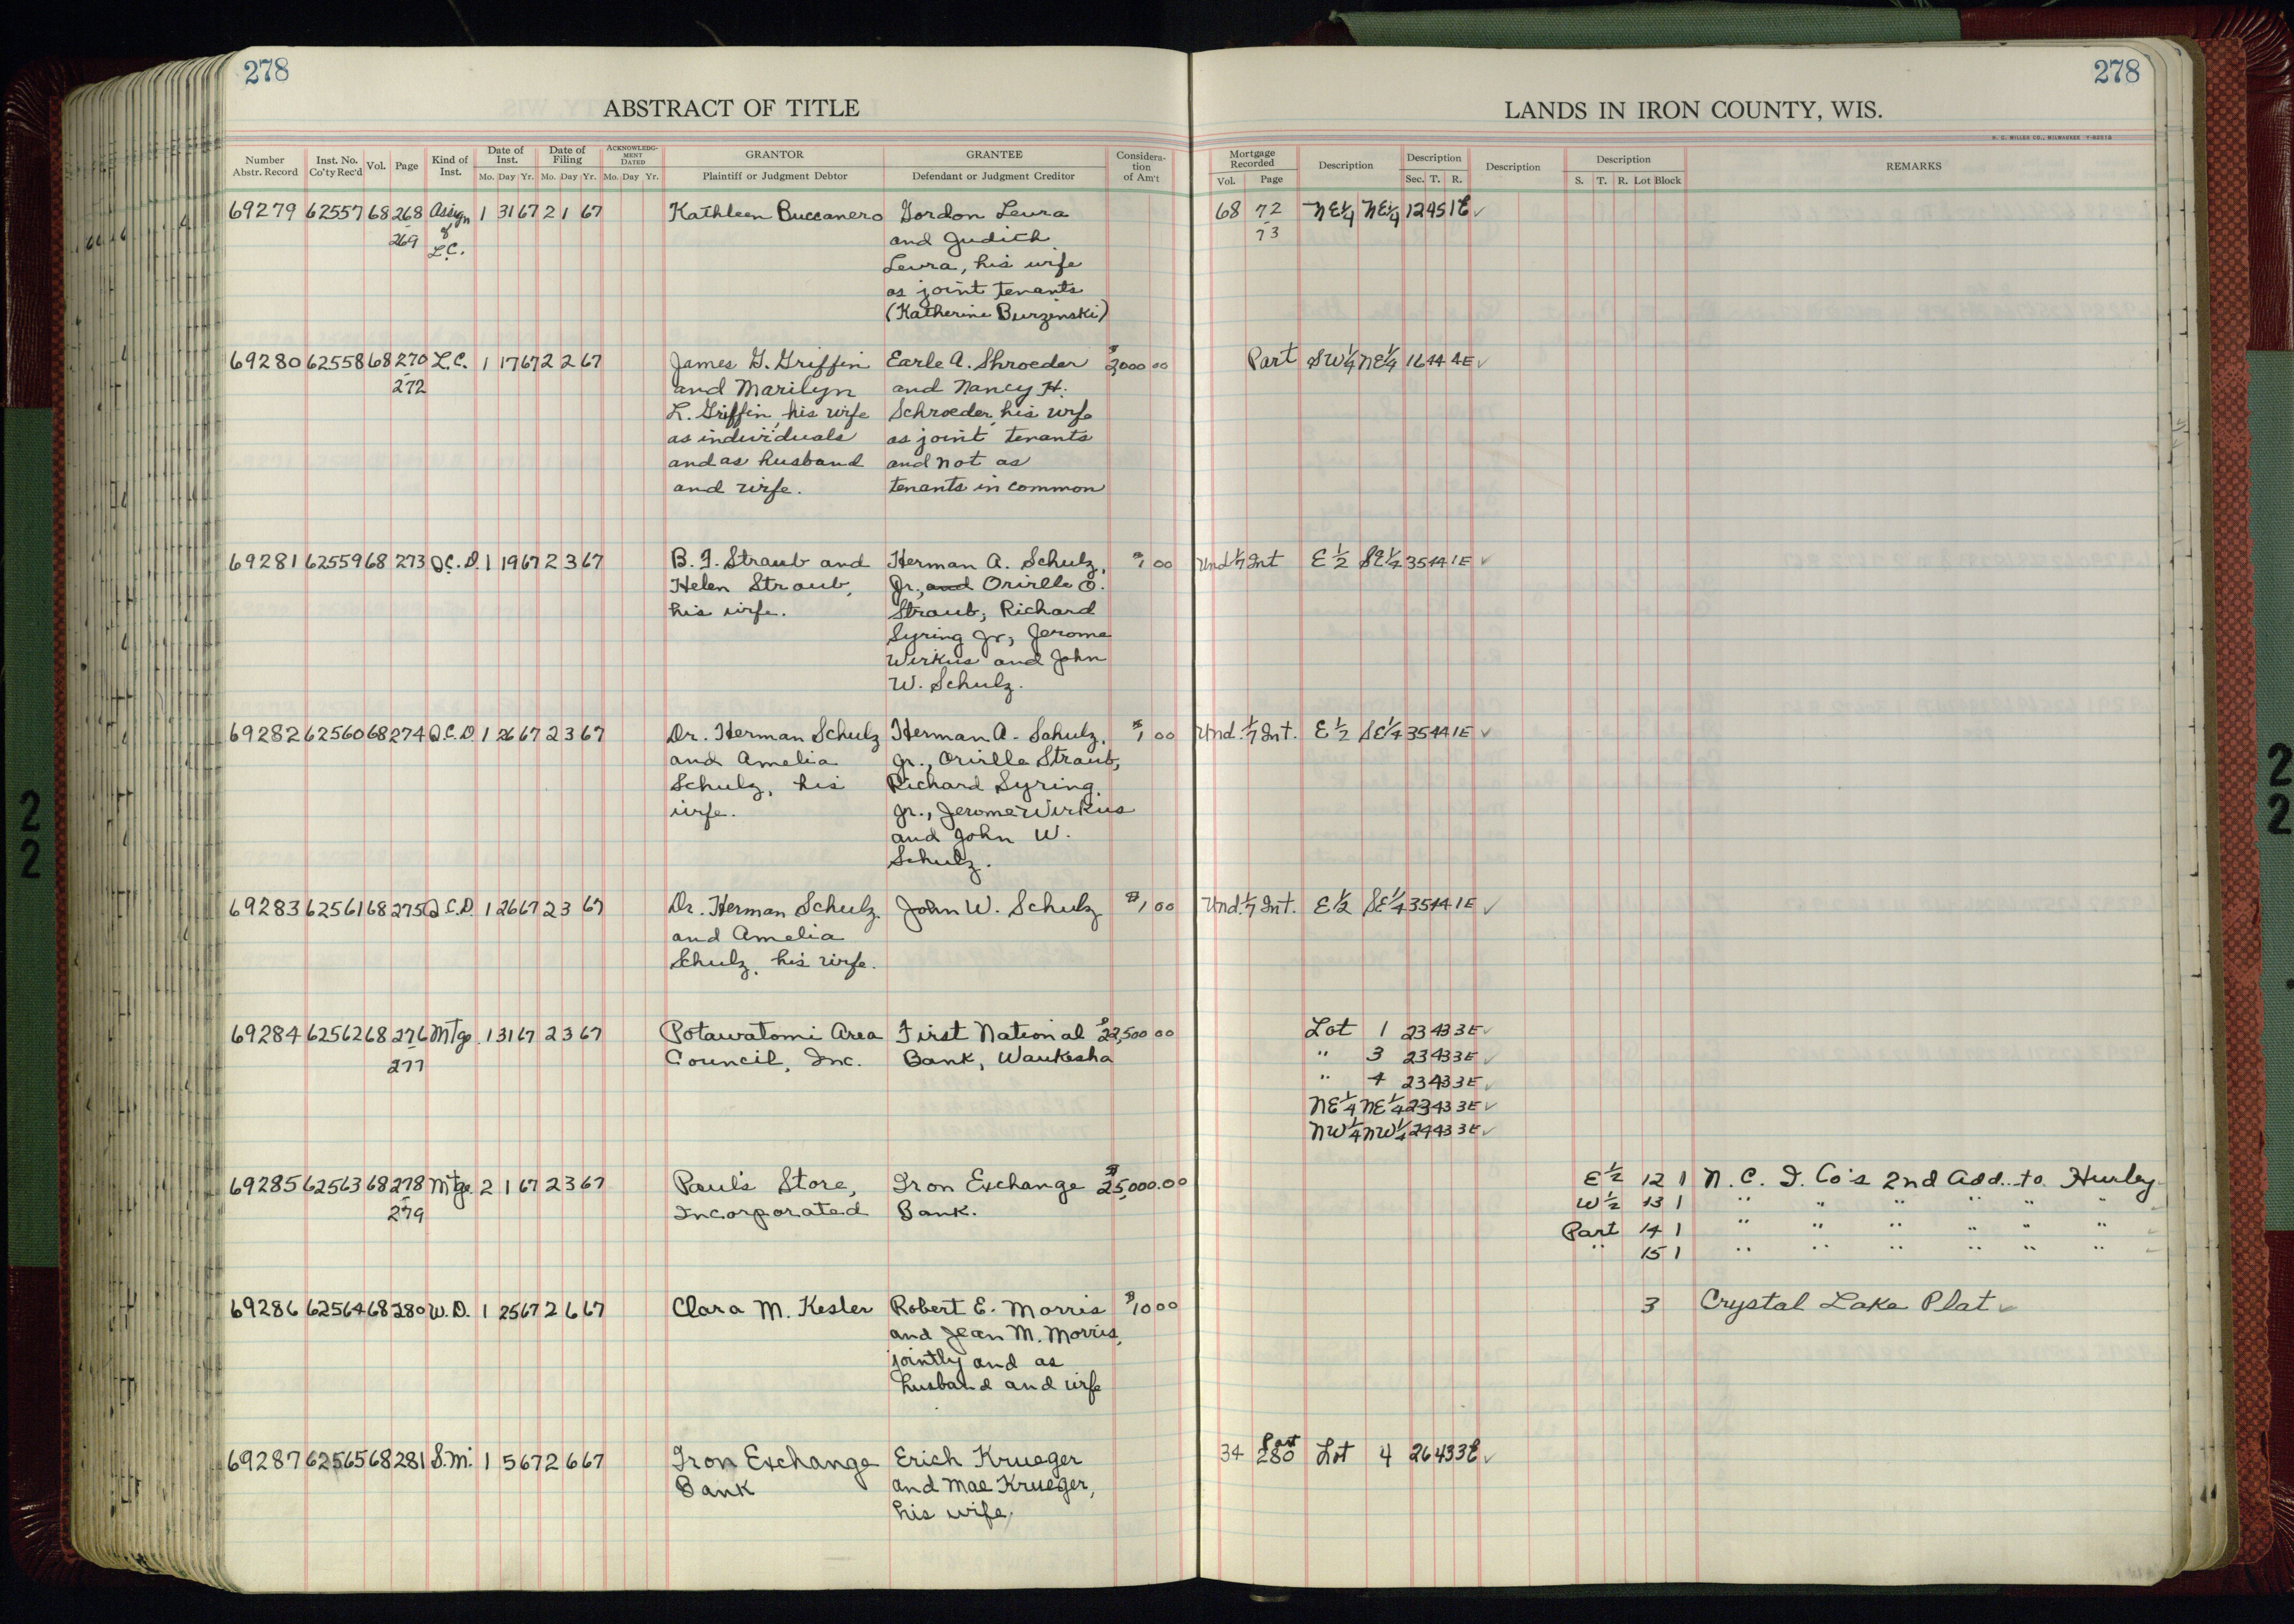 278
278
ABSTRACT OF TITLE
LANDS IN IRON COUNTY, WIS.
H. C. MILLER CO., MILWAUKEE
Number Abstr. Record Inst. No. Co'ty Rec'd Vol. Page Kind of Inst. Date of Inst. Mo. Day Yr. Date of Filing Mo. Day Yr. ACKNOWLEDGMENT DATED Mo. Day Yr. GRANTOR Plaintiff or Judgment Debtor GRANTEE Defendant or Judgment Creditor Consideration of Am't
Mortgage Recorded Vol. Page Description Description Sec. T. R. Description Description S. T. R. Lot Block REMARKS
69279 62557 68 268 Assign 1 31 67 2 1 67 Kathleen Buccanero Gordon Leura 68 72 NE¼ NE¼ 12 45 1E ✓
- 269 of and Judith - 73
L.C. Leura, his wife
as joint tenants
(Katherine Burzinski)
69280 62558 68 270 L.C. 1 17 67 2 2 67 James G. Griffin Earle A. Shroeder $3,000 00 Part SW¼ NE¼ 16 44 4E ✓
- 272 and Marilyn and Nancy H.
L. Griffin, his wife Schroeder, his wife
as individuals as joint tenants
and as husband and not as
and wife. tenants in common
69281 62559 68 273 Q.C.D. 1 19 67 2 3 67 B. F. Straub and Herman A. Schulz, $1 00 Und 1/7 Int E½ SE¼ 35 44 1E ✓
Helen Straub, Jr., and Orville O.
his wife. Straub, Richard
Syring Jr., Jerome
Wirkus and John
W. Schulz.
69282 62560 68 274 Q.C.D. 1 26 67 2 3 67 Dr. Herman Schulz Herman A. Schulz, $1 00 Und. 1/7 Int. E½ SE¼ 35 44 1E ✓
and Amelia Jr., Orville Straub,
Schulz, his Richard Syring,
wife. Jr., Jerome Wirkus
and John W.
Schulz.
69283 62561 68 275 Q.C.D. 1 26 67 2 3 67 Dr. Herman Schulz. John W. Schulz $1 00 Und. 1/7 Int. E½ SE¼ 35 44 1E ✓
and Amelia
Schulz, his wife.
69284 62562 68 276 Mtge. 1 31 67 2 3 67 Potawatomi Area First National $22,500 00 Lot 1 23 43 3E ✓
- 277 Council, Inc. Bank, Waukesha " 3 23 43 3E ✓
" 4 23 43 3E ✓
NE¼ NE¼ 23 43 3E ✓
NW¼ NW¼ 24 43 3E ✓
69285 62563 68 278 Mtge. 2 1 67 2 3 67 Paul's Store, Iron Exchange $25,000.00 E½ 12 1 N. C. I. Co's 2nd Add. to Hurley
- 279 Incorporated Bank. W½ 13 1 " " " " " " ✓
Part 14 1 " " " " " " ✓
" 15 1 " " " " " " ✓
69286 62564 68 280 W.D. 1 25 67 2 6 67 Clara M. Kesler Robert E. Morris $10 00 3 Crystal Lake Plat ✓
and Jean M. Morris,
jointly and as
husband and wife
69287 62565 68 281 S.M. 1 5 67 2 6 67 Iron Exchange Erich Krueger 34 280 Part Lot 4 26 43 3E ✓
Bank and Mae Krueger,
his wife.
22
22